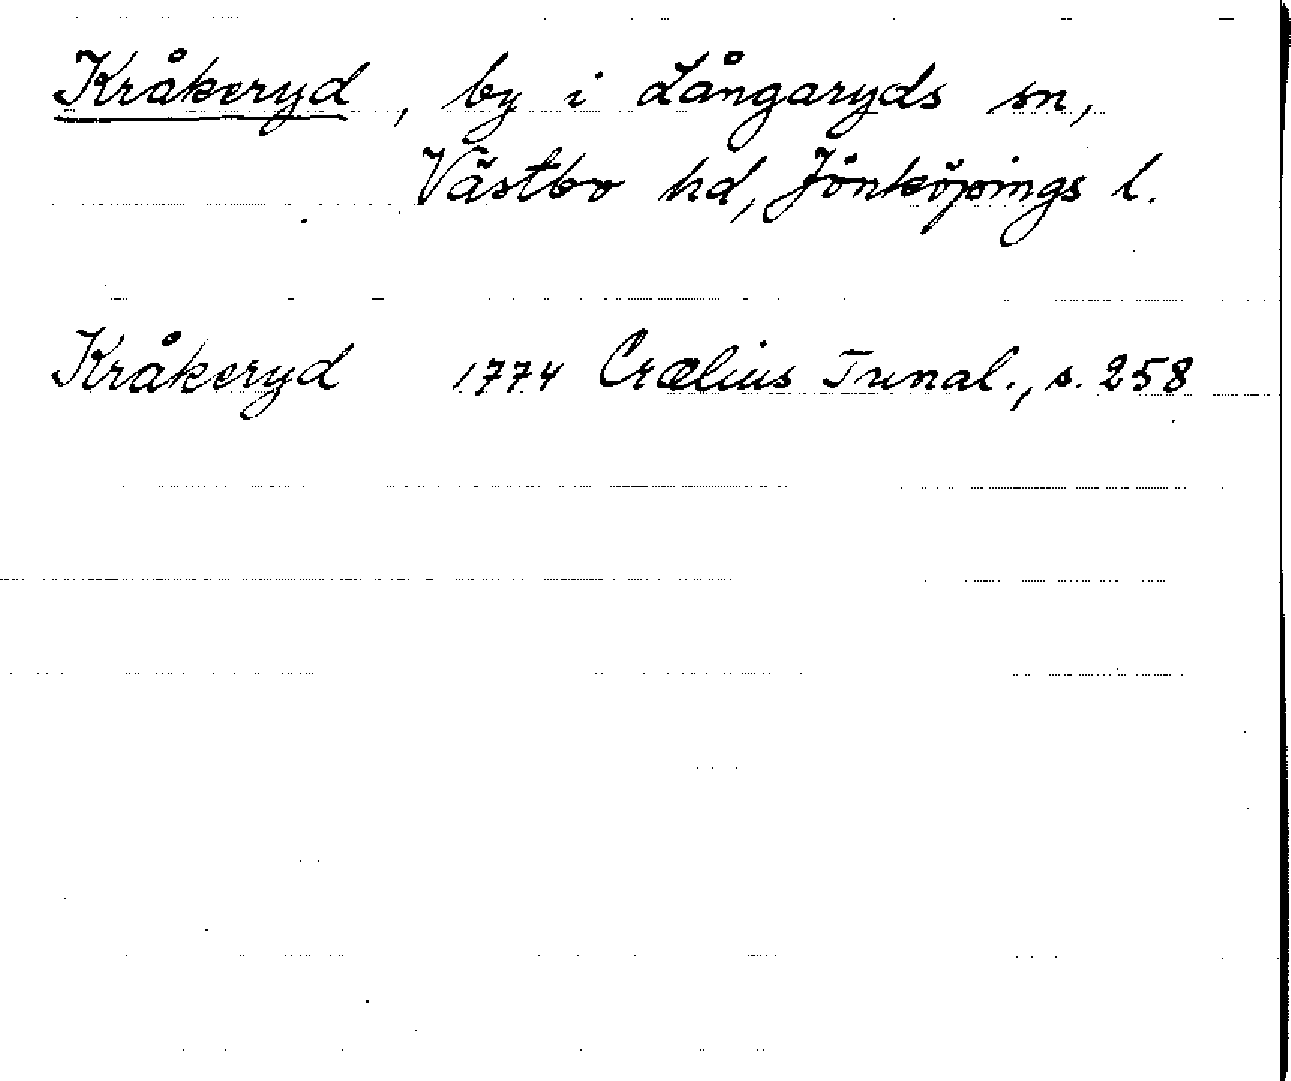 Kråkeryd, by i Långaryds sn,
Västbo hd, Jönköpings l.
Kråkeryd 1774 Crælius Tunal., s. 258